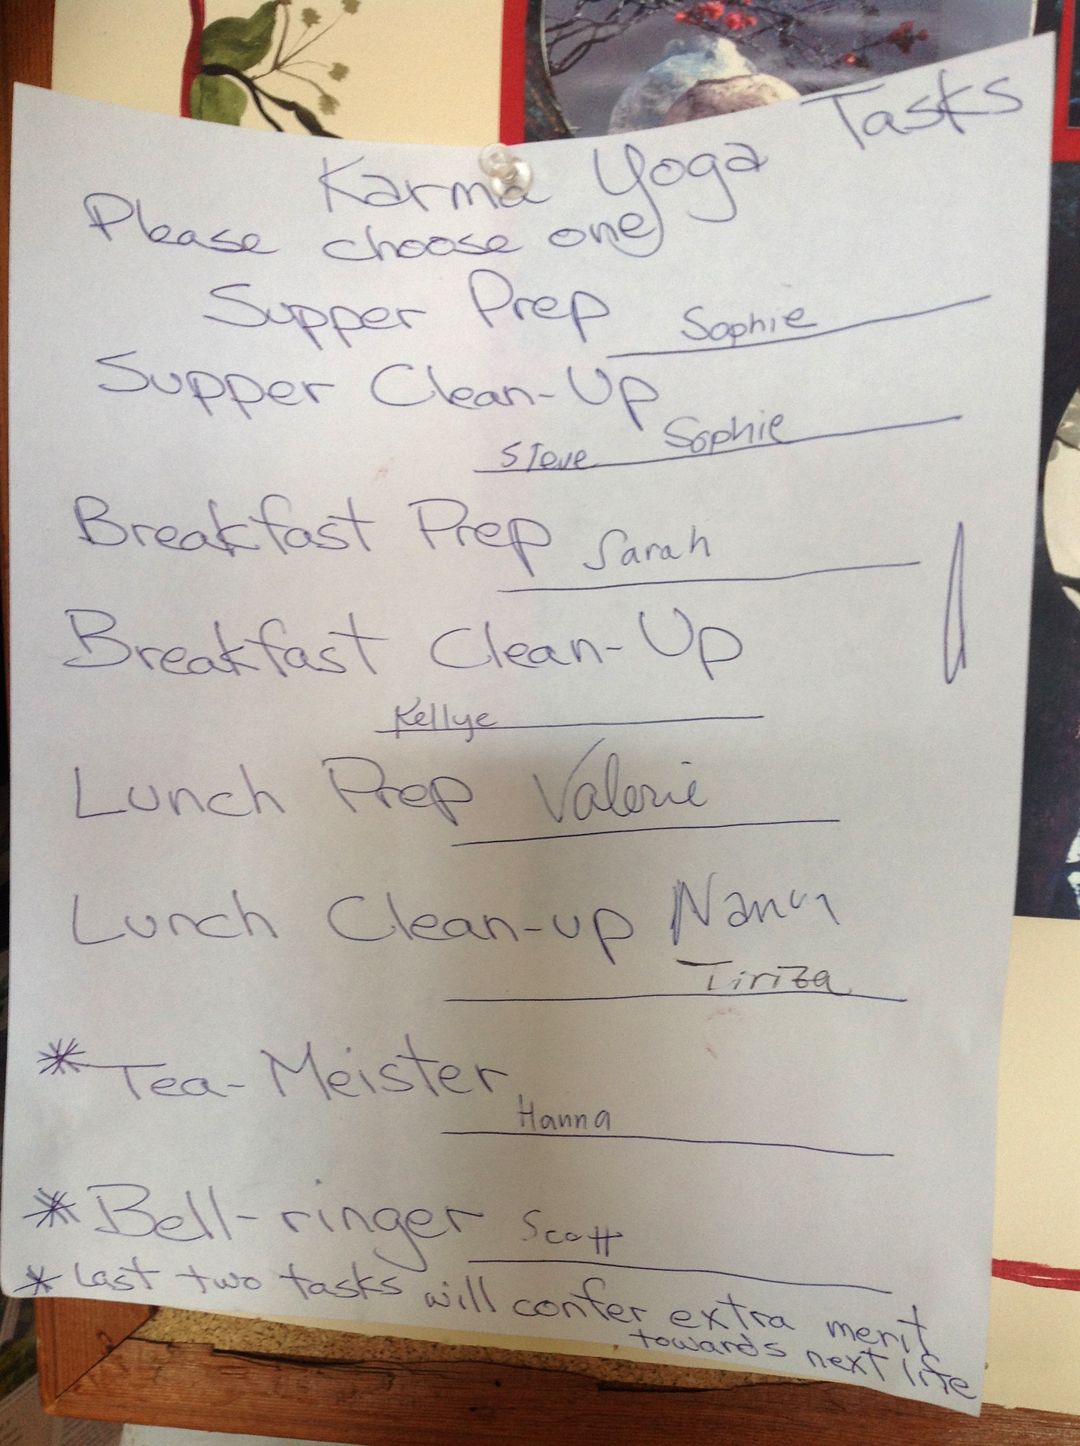 Karma Yoga Tasks
Please choose one
Supper Prep Sophie
Supper Clean-Up
Steve Sophie
Breakfast Prep Sarah
Breakfast Clean-Up
Kellye
Lunch Prep Valerie
Lunch Clean-up Nancy
Tiriza
* Tea-Meister
Hanna
* Bell-ringer Scott
* Last two tasks will confer extra merit
towards next life